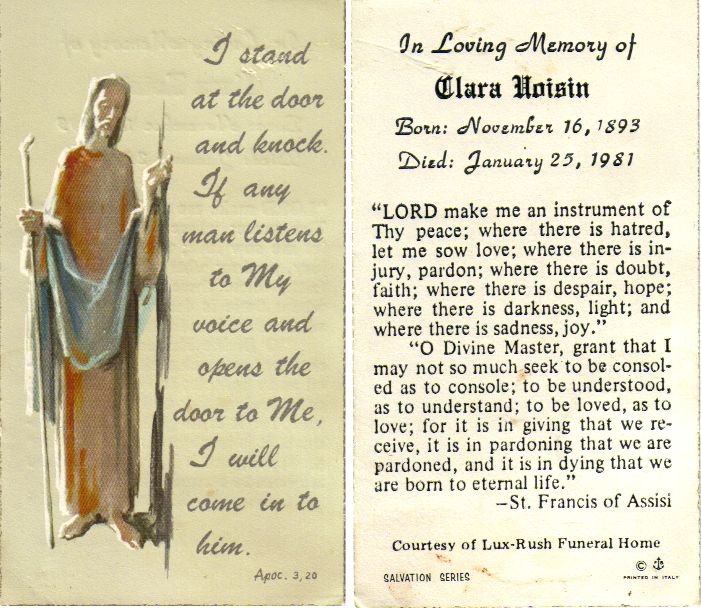 I stand
at the door
and knock.
If any
man listens
to My
voice and
opens the
door to Me,
I will
come in to
him.
Apoc. 3,20
In Loving Memory of
Clara Voisin
Born: November 16, 1893
Died: January 25, 1981
“LORD make me an instrument of
Thy peace; where there is hatred,
let me sow love; where there is in-
jury, pardon; where there is doubt,
faith; where there is despair, hope;
where there is darkness, light; and
where there is sadness, joy.”
“O Divine Master, grant that I
may not so much seek to be consol-
ed as to console; to be understood,
as to understand; to be loved, as to
love; for it is in giving that we re-
ceive, it is in pardoning that we are
pardoned, and it is in dying that we
are born to eternal life.”
—St. Francis of Assisi
Courtesy of Lux-Rush Funeral Home
SALVATION SERIES
©
PRINTED IN ITALY